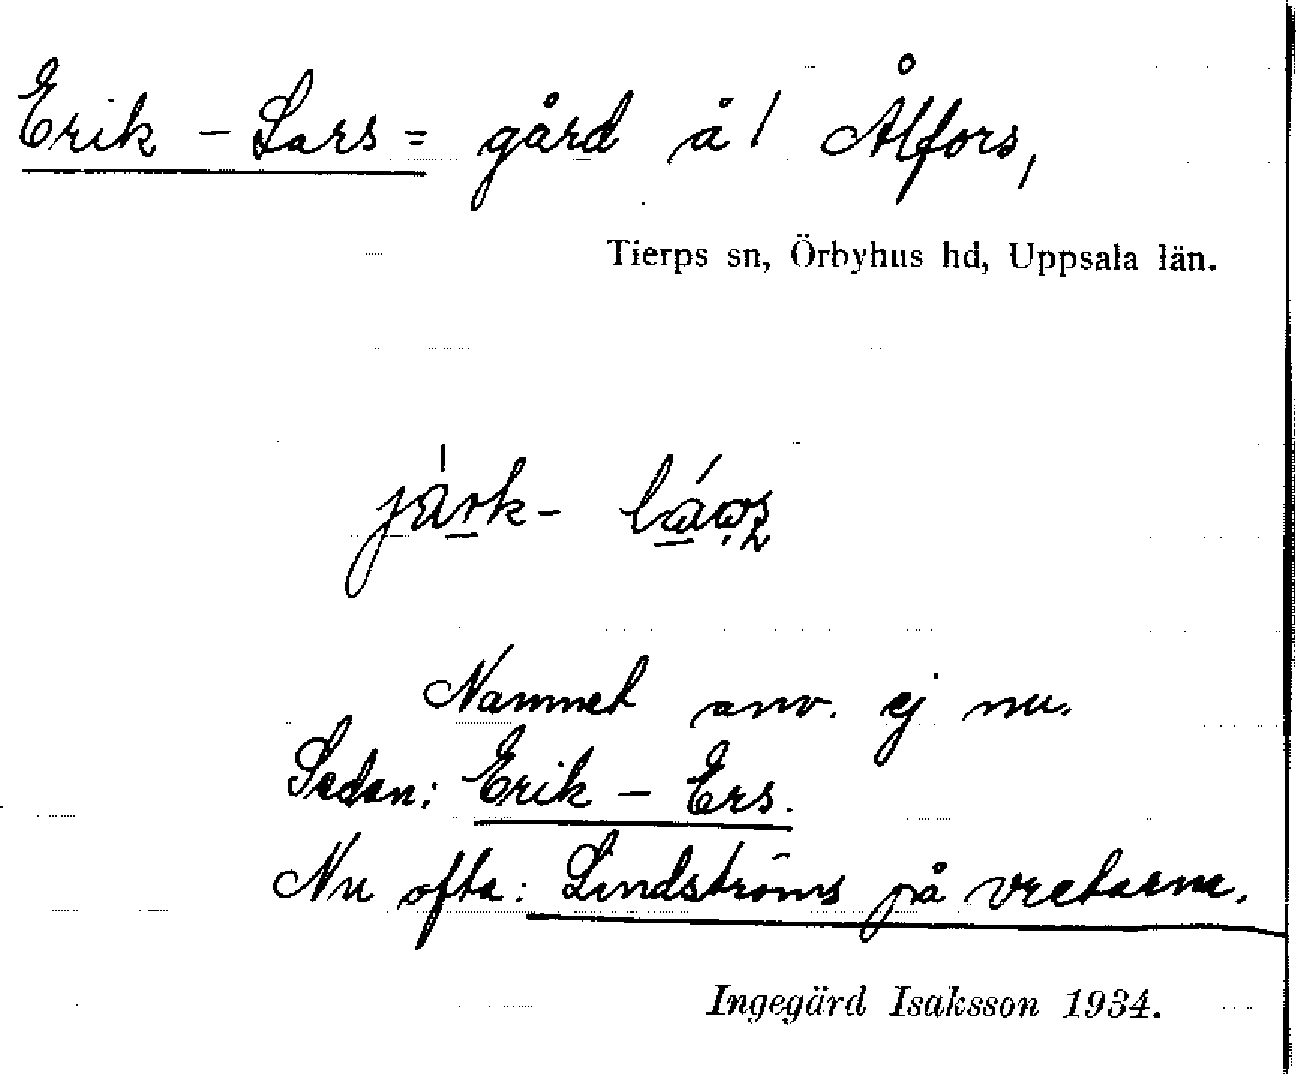 Erik-Lars= gård å 1 Ålfors,
Tierps sn, Örbyhus hd, Uppsala län.
Namnet anv. ej nu.
Sedan: Erik-Ers.
Nu ofta: Lindströms på vretarna.
Ingegärd Isaksson 1934.